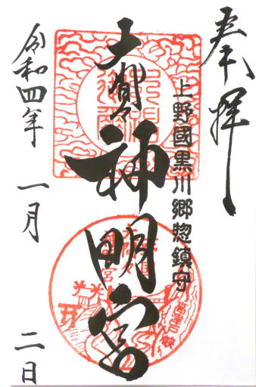 奉拝
上野國黒川郷惣鎮守
神明宮
令和四年 一月 二日